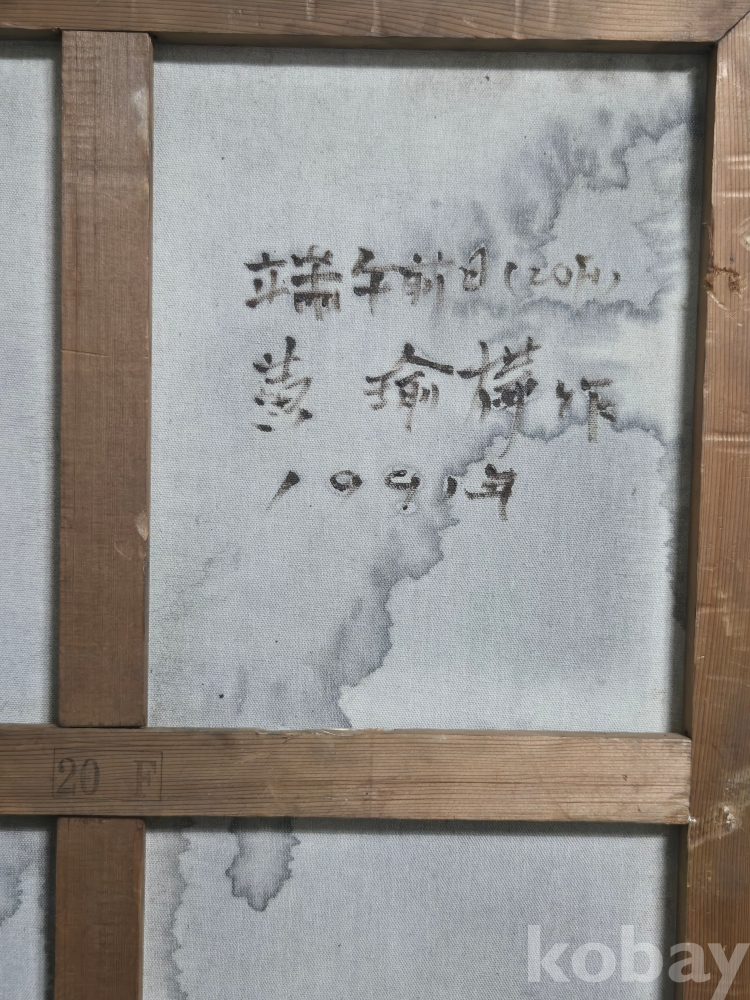 端午前日(20号)
黄 瑜 横作
1991年
20 F
kobay